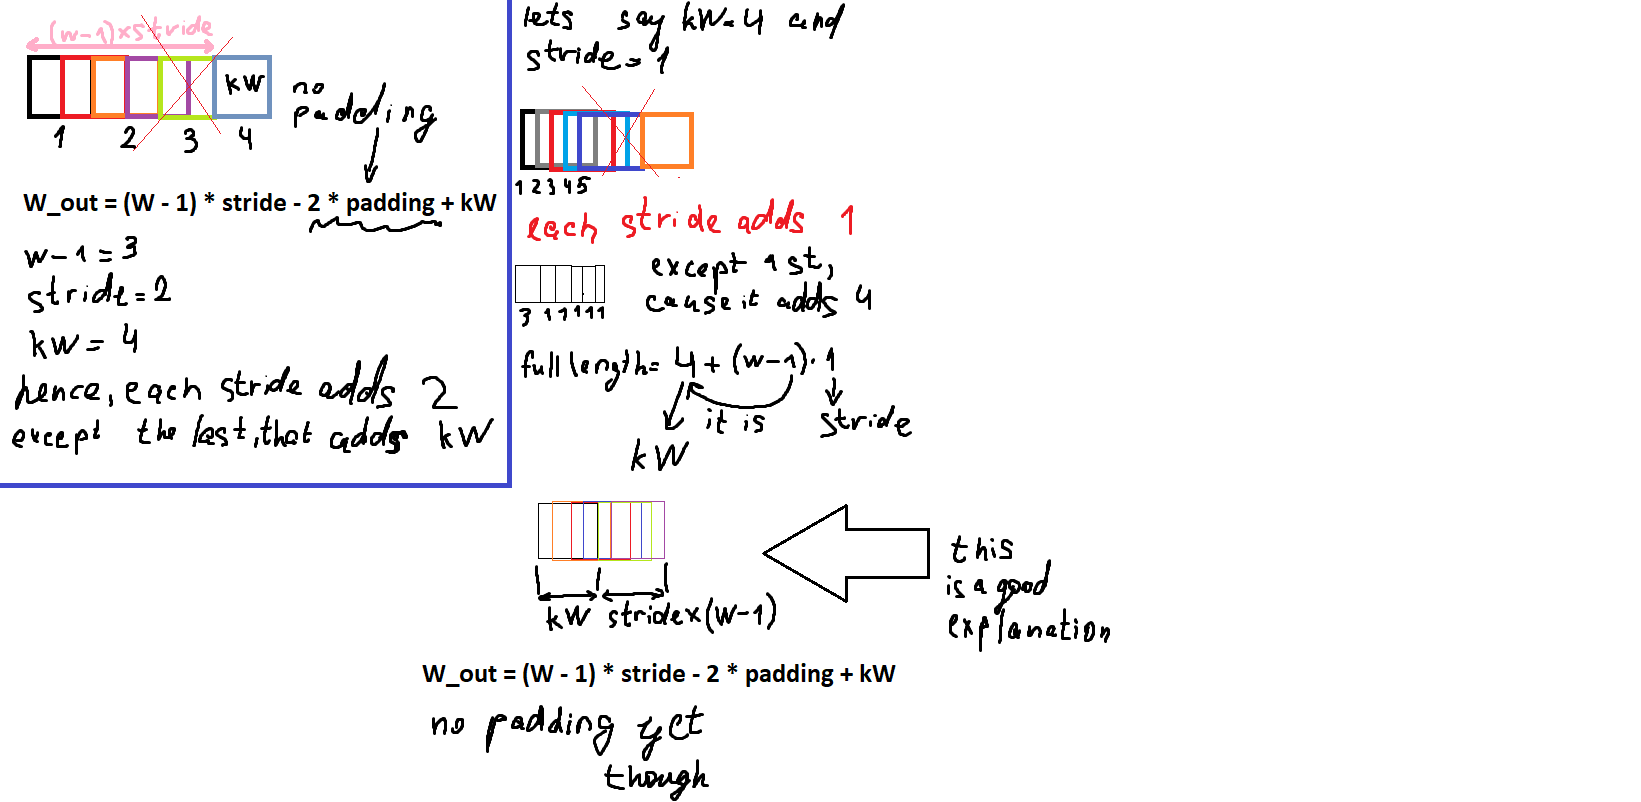 (w-1)×stride
kW
1 2 3 4
no
padding
W_out = (W - 1) * stride - 2 * padding + kW
w-1=3
stride=2
kW=4
hence, each stride adds 2
except the last, that adds kW
lets say kW=4 and
stride=1
1 2 3 4 5
each stride adds 1
except 1st,
cause it adds 4
3 1 1 1 1 1
full length= 4+(w-1)·1
it is
stride
kW
kW stride×(W-1)
this
is a good
explanation
W_out = (W - 1) * stride - 2 * padding + kW
no padding yet
though